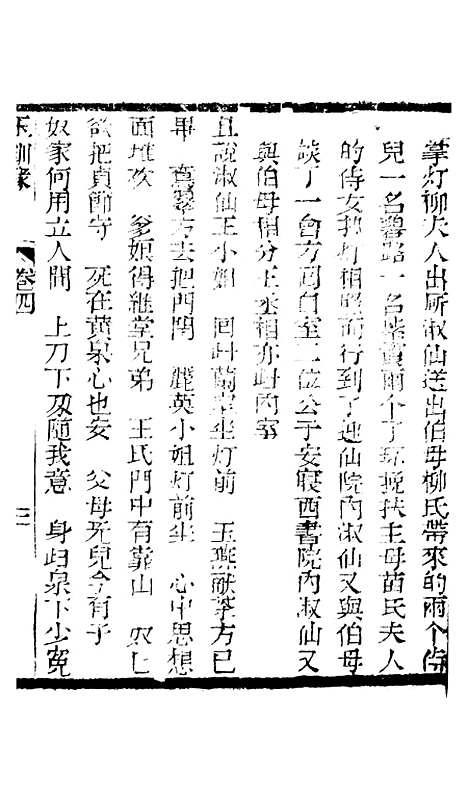 掌灯柳夫人出所淑仙送出伯母柳氏帶來的兩个侍
兒一名 路一名紫 兩个了环挽扶主母苗氏夫人
的侍女執灯相照而行到了迎仙院內淑仙又與伯母
談了一會方回自室二位公子安寢西書院內淑仙又
與伯母相分王丞相亦歸內室
且說淑仙王小姐 回歸蘭 坐灯前 玉燕献茶方已
畢 方去把門閉 麗英小姐灯前坐 心中思想
面堆欢 爹娘得継堂兄弟 王氏門中有靠山 奴
欲把貞節守 死在黄泉心也安 父母旡兒今有子
奴家何用立人間 上刀下刄随我意 身归泉下少寃
卷四